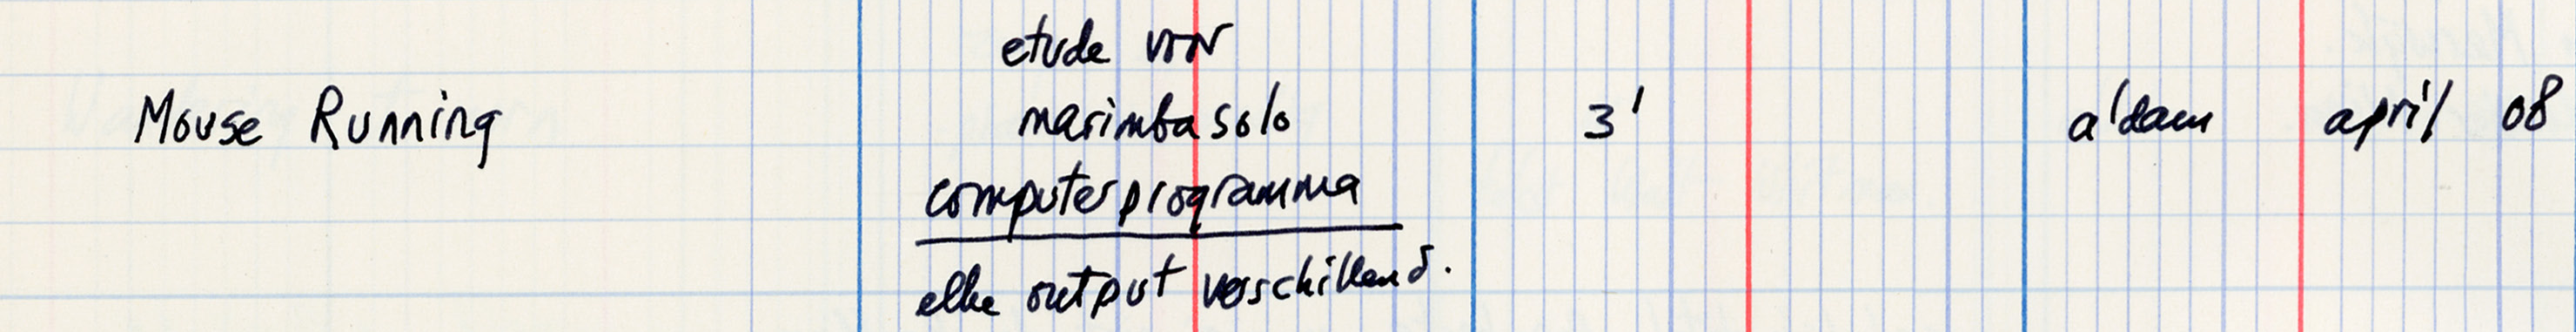 etude voor
Mouse Running marimba solo 3' a'dam april 08
computerprogramma
elke output verschillend.